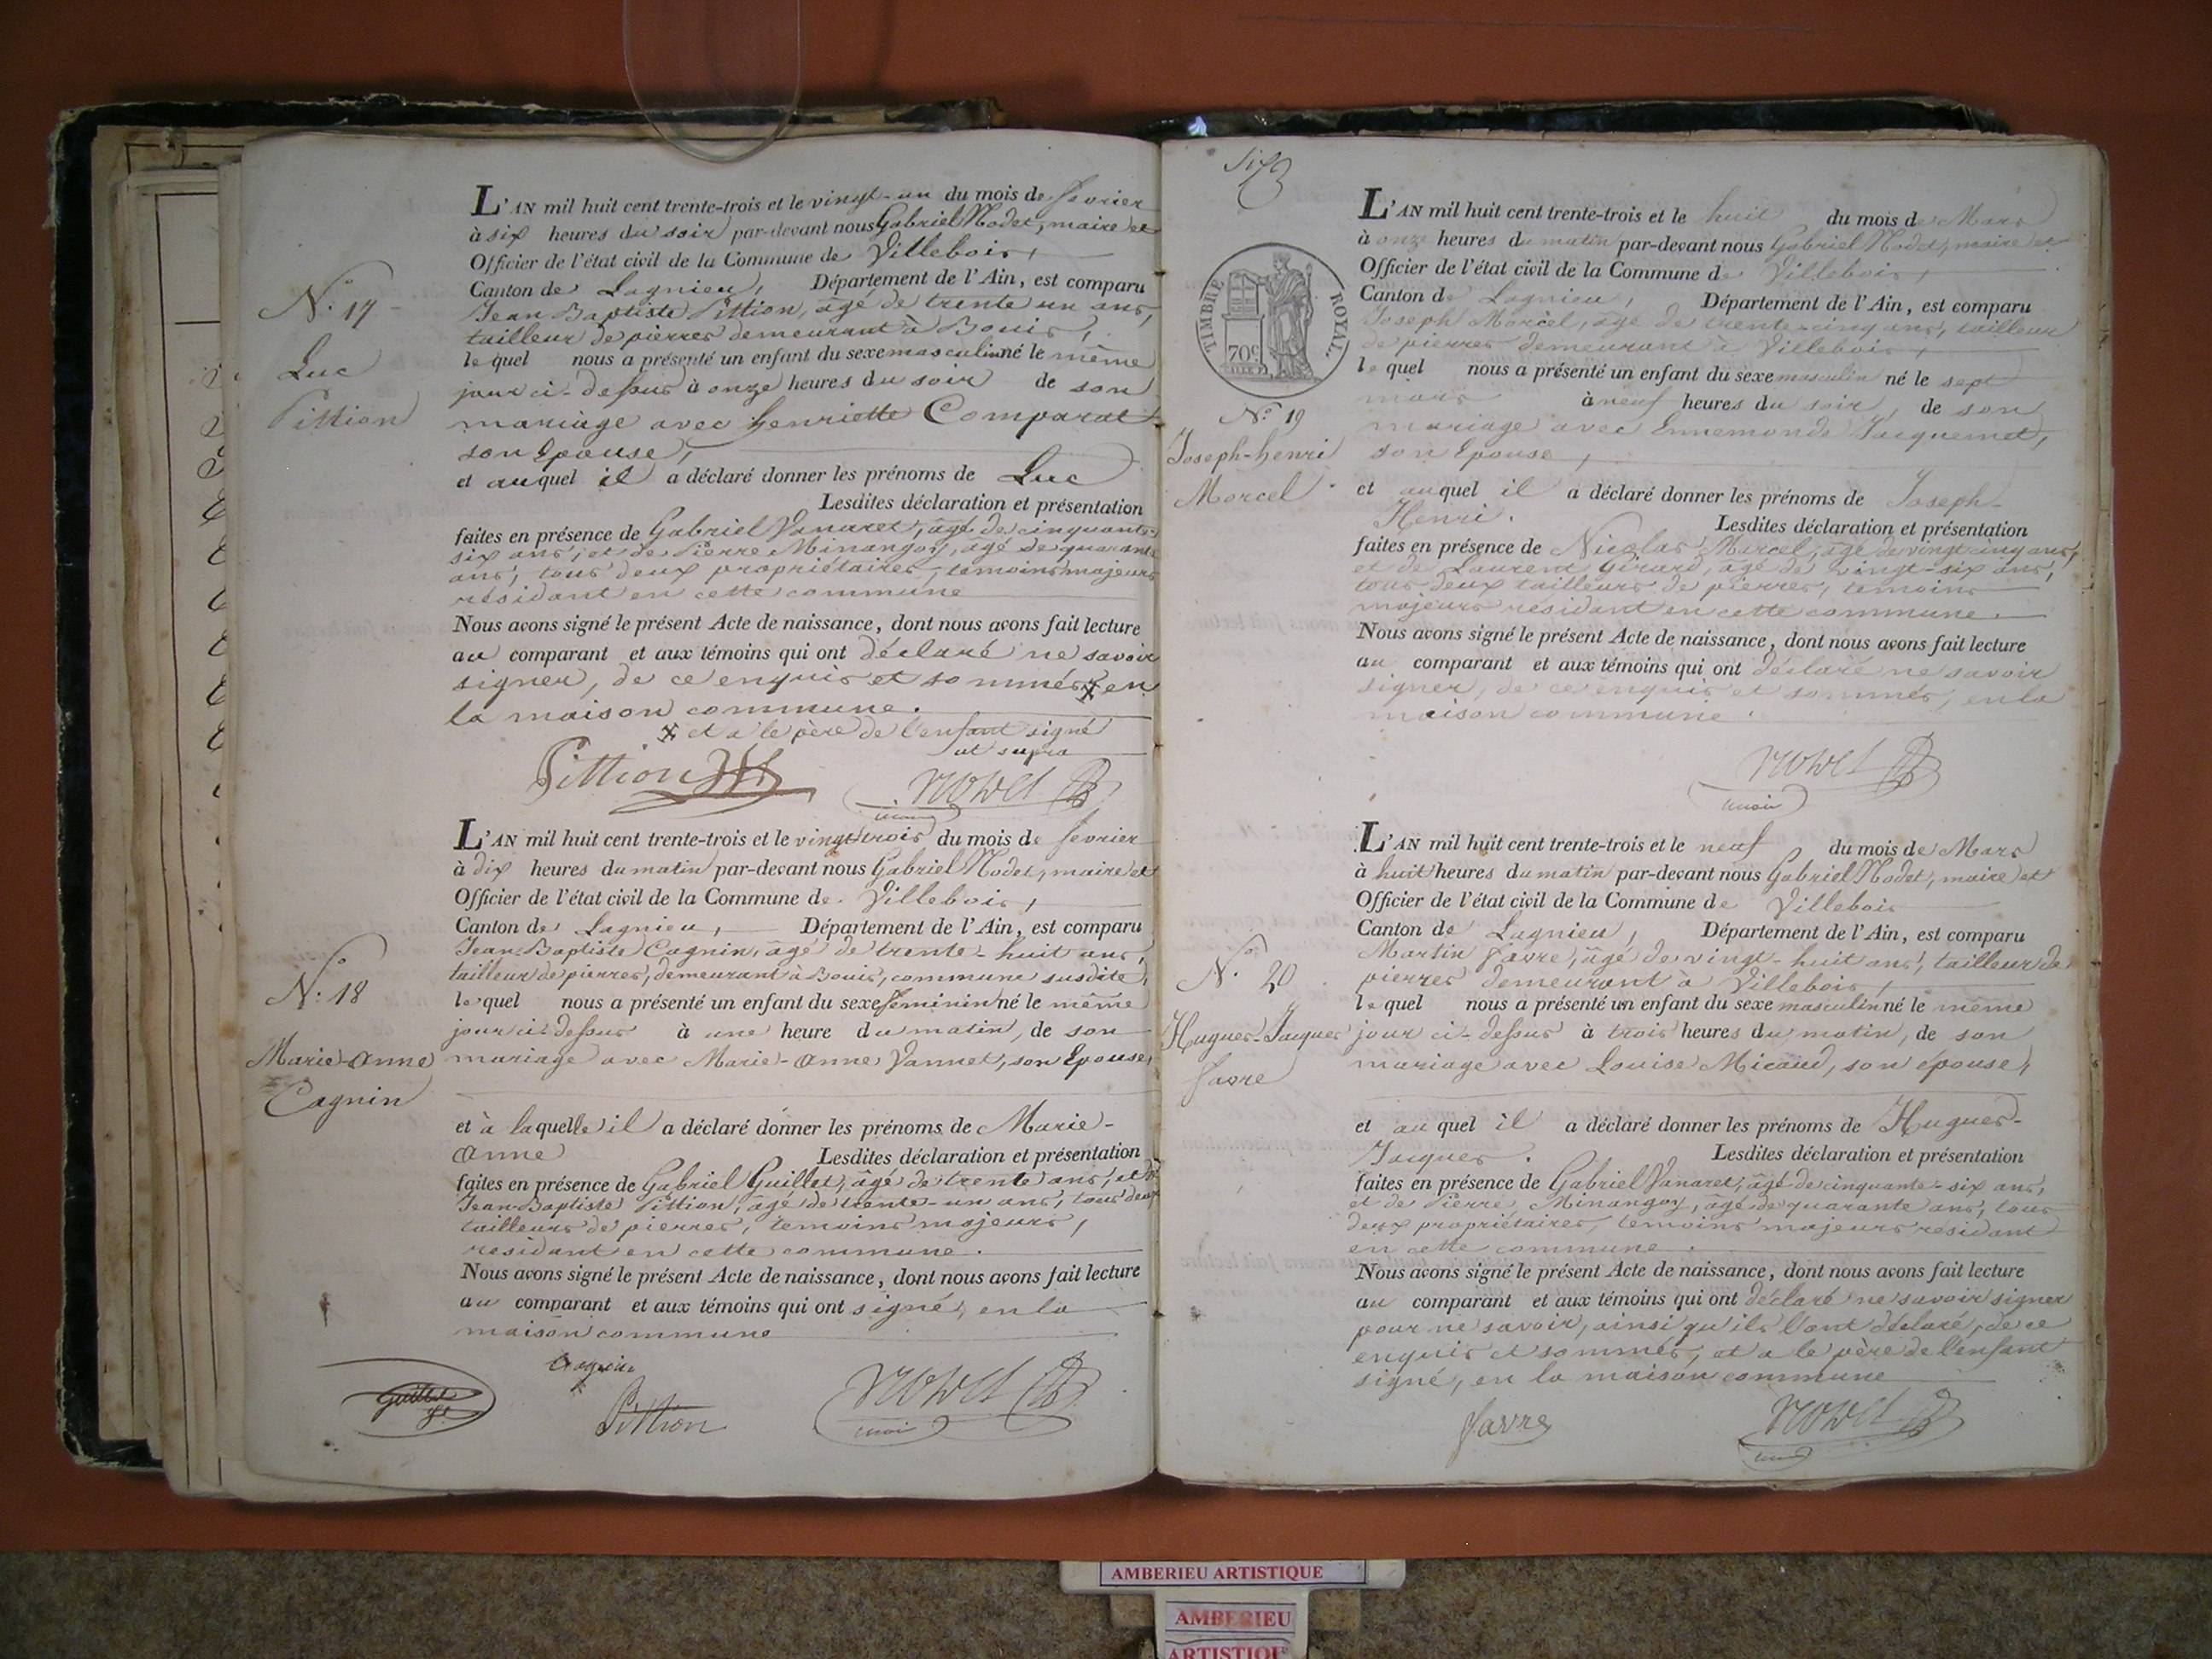 L'AN mil huit cent trente-trois et le vingt-un du mois de fevrier
à six heures du soir par-devant nous Gabriel Nodet, maire et
Officier de l'état civil de la Commune de Villebois,
Canton de Lagnieu, Département de l'Ain, est comparu
Jean Baptiste Pittion, âgé de trente un ans,
tailleur de pierres demeurant à Bouis,
lequel nous a présenté un enfant du sexe masculin né le même
jour ci-dessus à onze heures du soir de son
mariage avec henriette Comparat
son Epouse,
et auquel il a déclaré donner les prénoms de Luc
Lesdites déclaration et présentation
faites en présence de Gabriel Vanaret, âgé de cinquante-
six ans, et de Pierre Minangoy, âgé de quarante
ans, tous deux propriétaires, temoins majeurs
résidant en cette commune
Nous avons signé le présent Acte de naissance, dont nous avons fait lecture
au comparant et aux témoins qui ont déclaré ne savoir
signer, de ce enquis et sommés X en
la maison commune.
X et a le père de l'enfant signé
ut supra
Pittion Nodet
maire
N° 17
Luc
Pittion
L'AN mil huit cent trente-trois et le vingt trois du mois de fevrier
à dix heures du matin par-devant nous Gabriel Nodet, maire et
Officier de l'état civil de la Commune de Villebois,
Canton de Lagnieu, Département de l'Ain, est comparu
Jean Baptiste Cagnin, âgé de trente-huit ans,
tailleur de pierres, demeurant à Bouis, commune susdite,
lequel nous a présenté un enfant du sexe féminin né le même
jour ci-dessus à une heure du matin, de son
mariage avec Marie-Anne Vannet, son Epouse,
et à laquelle il a déclaré donner les prénoms de Marie-
Anne Lesdites déclaration et présentation
faites en présence de Gabriel Guillet, âgé de trente ans, et de
Jean-Baptiste Pittion, âgé de trente-un ans, tous deux
tailleurs de pierres, temoins majeurs,
residant en cette commune.
Nous avons signé le présent Acte de naissance, dont nous avons fait lecture
au comparant et aux témoins qui ont signé, en la
maison commune
Guillet Cagnin Pittion Nodet
maire
N° 18
Marie-Anne
Cagnin
TIMBRE ROYAL.
70c
L'AN mil huit cent trente-trois et le huit du mois de Mars
à onze heures du matin par-devant nous Gabriel Nodet, maire et
Officier de l'état civil de la Commune de Villebois,
Canton de Lagnieu, Département de l'Ain, est comparu
Joseph Morcel, âgé de trente-cinq ans, tailleur
de pierres demeurant à Villebois,
lequel nous a présenté un enfant du sexe masculin né le sept
mars à neuf heures du soir, de son
mariage avec Ennemonde Jacquemet,
son Epouse,
et auquel il a déclaré donner les prénoms de Joseph-
Henri. Lesdites déclaration et présentation
faites en présence de Nicolas Marcel, âgé de vingt cinq ans,
et de Laurent Girard, âgé de vingt-six ans,
tous deux tailleurs de pierres, temoins
majeurs résidant en cette commune.
Nous avons signé le présent Acte de naissance, dont nous avons fait lecture
au comparant et aux témoins qui ont déclaré ne savoir
signer, de ce enquis et sommés, en la
maison commune.
Nodet
maire
N° 19
Joseph-henri
Morcel
L'AN mil huit cent trente-trois et le neuf du mois de Mars
à huit heures du matin par-devant nous Gabriel Nodet, maire et
Officier de l'état civil de la Commune de Villebois
Canton de Lagnieu, Département de l'Ain, est comparu
Martin Favre, âgé de vingt-huit ans, tailleur de
pierres demeurant à Villebois,
lequel nous a présenté un enfant du sexe masculin né le même
jour ci-dessus à trois heures du matin, de son
mariage avec Louise Micaud, son épouse,
et auquel il a déclaré donner les prénoms de Hugues-
Jacques. Lesdites déclaration et présentation
faites en présence de Gabriel Vanaret, âgé de cinquante-six ans,
et de Pierre Minangoy, âgé de quarante ans, tous
deux propriétaires, temoins majeurs résidant
en cette commune.
Nous avons signé le présent Acte de naissance, dont nous avons fait lecture
au comparant et aux témoins qui ont déclaré ne savoir signer
pour ne savoir, ainsi qu'ils l'ont déclaré, de ce
enquis et sommés, et a le père de l'enfant
signé, en la maison commune
favre Nodet
N° 20
Hugues-Jacques
favre
AMBERIEU ARTISTIQUE
AMBERIEU
ARTISTIQUE